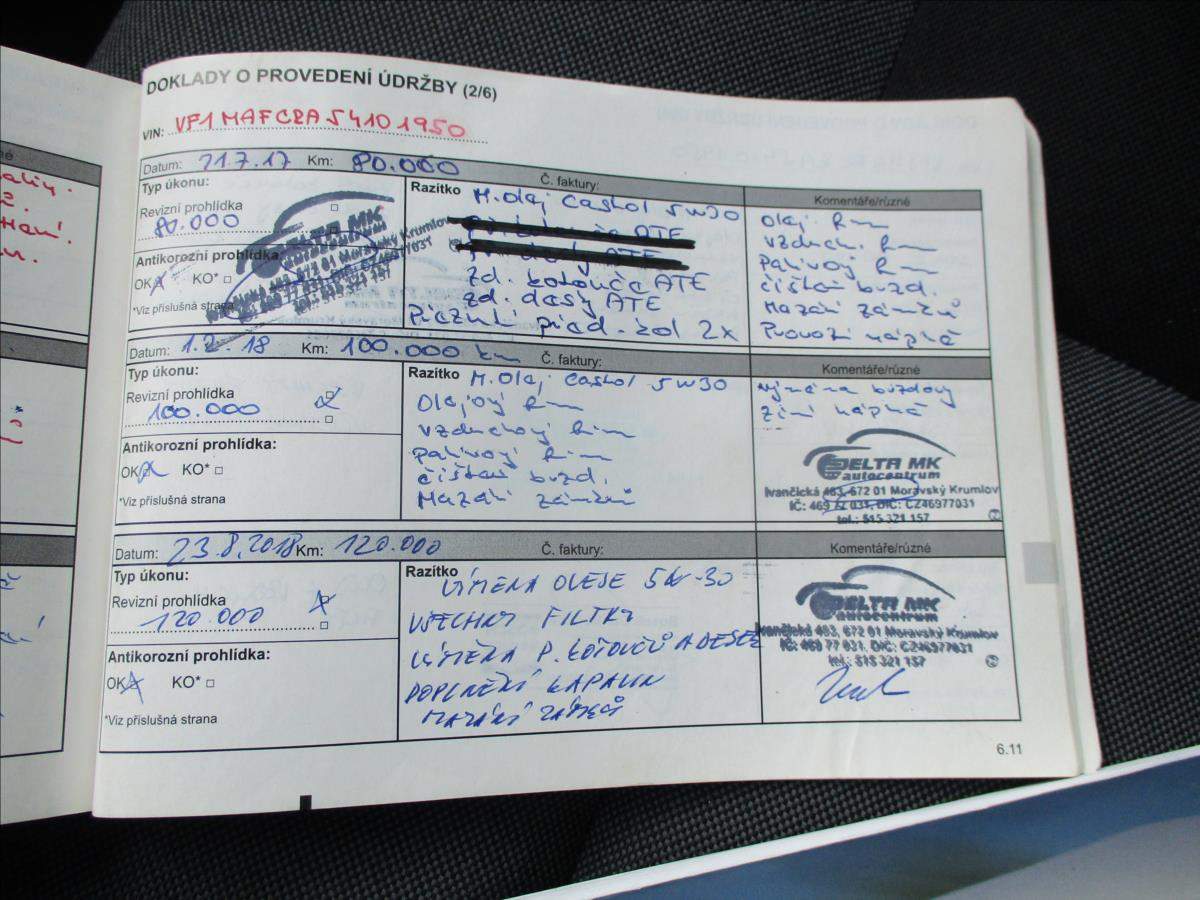 DOKLADY O PROVEDENÍ ÚDRŽBY (2/6)
VIN: VF1MAFCRA54101950
Datum: 21.7.17 Km: 80.000 Č. faktury:
Typ úkonu:
Revizní prohlídka
80.000
Antikorozní prohlídka:
OK KO*
*Viz příslušná strana
Razítko
M.olej Castrol 5W30
ATE
ATE
zd. kotouče ATE
zd. desky ATE
před. kol 2x
Komentáře/různé
Olej.
Vzduch.
Palivový
čištění brzd.
Mazání zámků
Provozní náplně
DELTA MK
Datum: 1.2.18 Km: 100.000 km Č. faktury:
Typ úkonu:
Revizní prohlídka
100.000
Antikorozní prohlídka:
OK KO*
*Viz příslušná strana
Razítko
M.Olej Castrol 5W30
Olejový
Vzduchový
Palivový
čištění brzd.
Mazání zámků
Komentáře/různé
Výměna brzdový
DELTA MK
autocentrum
Ivančická 463, 672 01 Moravský Krumlov
IČ: 469 77 031, DIČ: CZ46977031
tel.: 515 321 157
Datum: 23.8.2018 Km: 120.000 Č. faktury:
Typ úkonu:
Revizní prohlídka
120.000
Antikorozní prohlídka:
OK KO*
*Viz příslušná strana
Razítko
VÝMĚNA OLEJE 5W-30
VŠECHNY FILTRY
VÝMĚNA P. KOTOUČŮ A DESEK
DOPLNĚNÍ KAPALIN
MAZÁNÍ ZÁMKŮ
Komentáře/různé
DELTA MK
autocentrum
Ivančická 463, 672 01 Moravský Krumlov
IČ: 469 77 031, DIČ: CZ46977031
tel.: 515 321 157
6.11